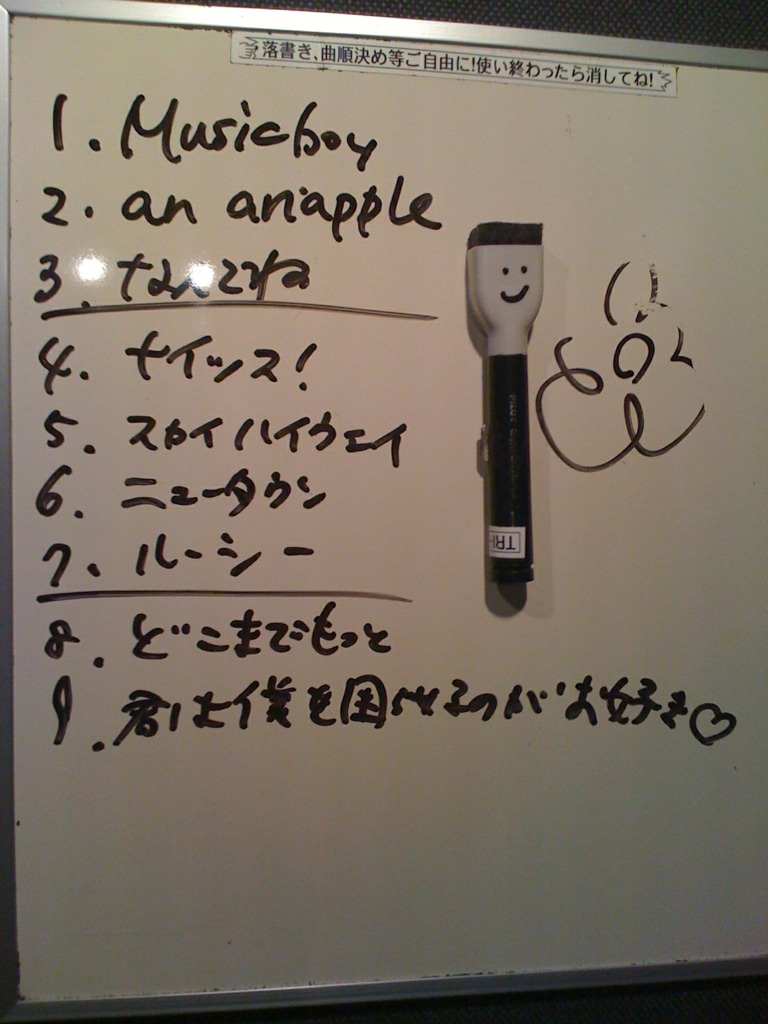 落書き、曲順決め等ご自由に!使い終わったら消してね!
1. Musicboy
2. an an apple
3. なんてね
4. ナイッス!
5. スカイハイウェイ
6. ニュータウン
7. ルーシー
8. どこまでもっと
9. 君は僕を困らせるのがお好き♡
TRI